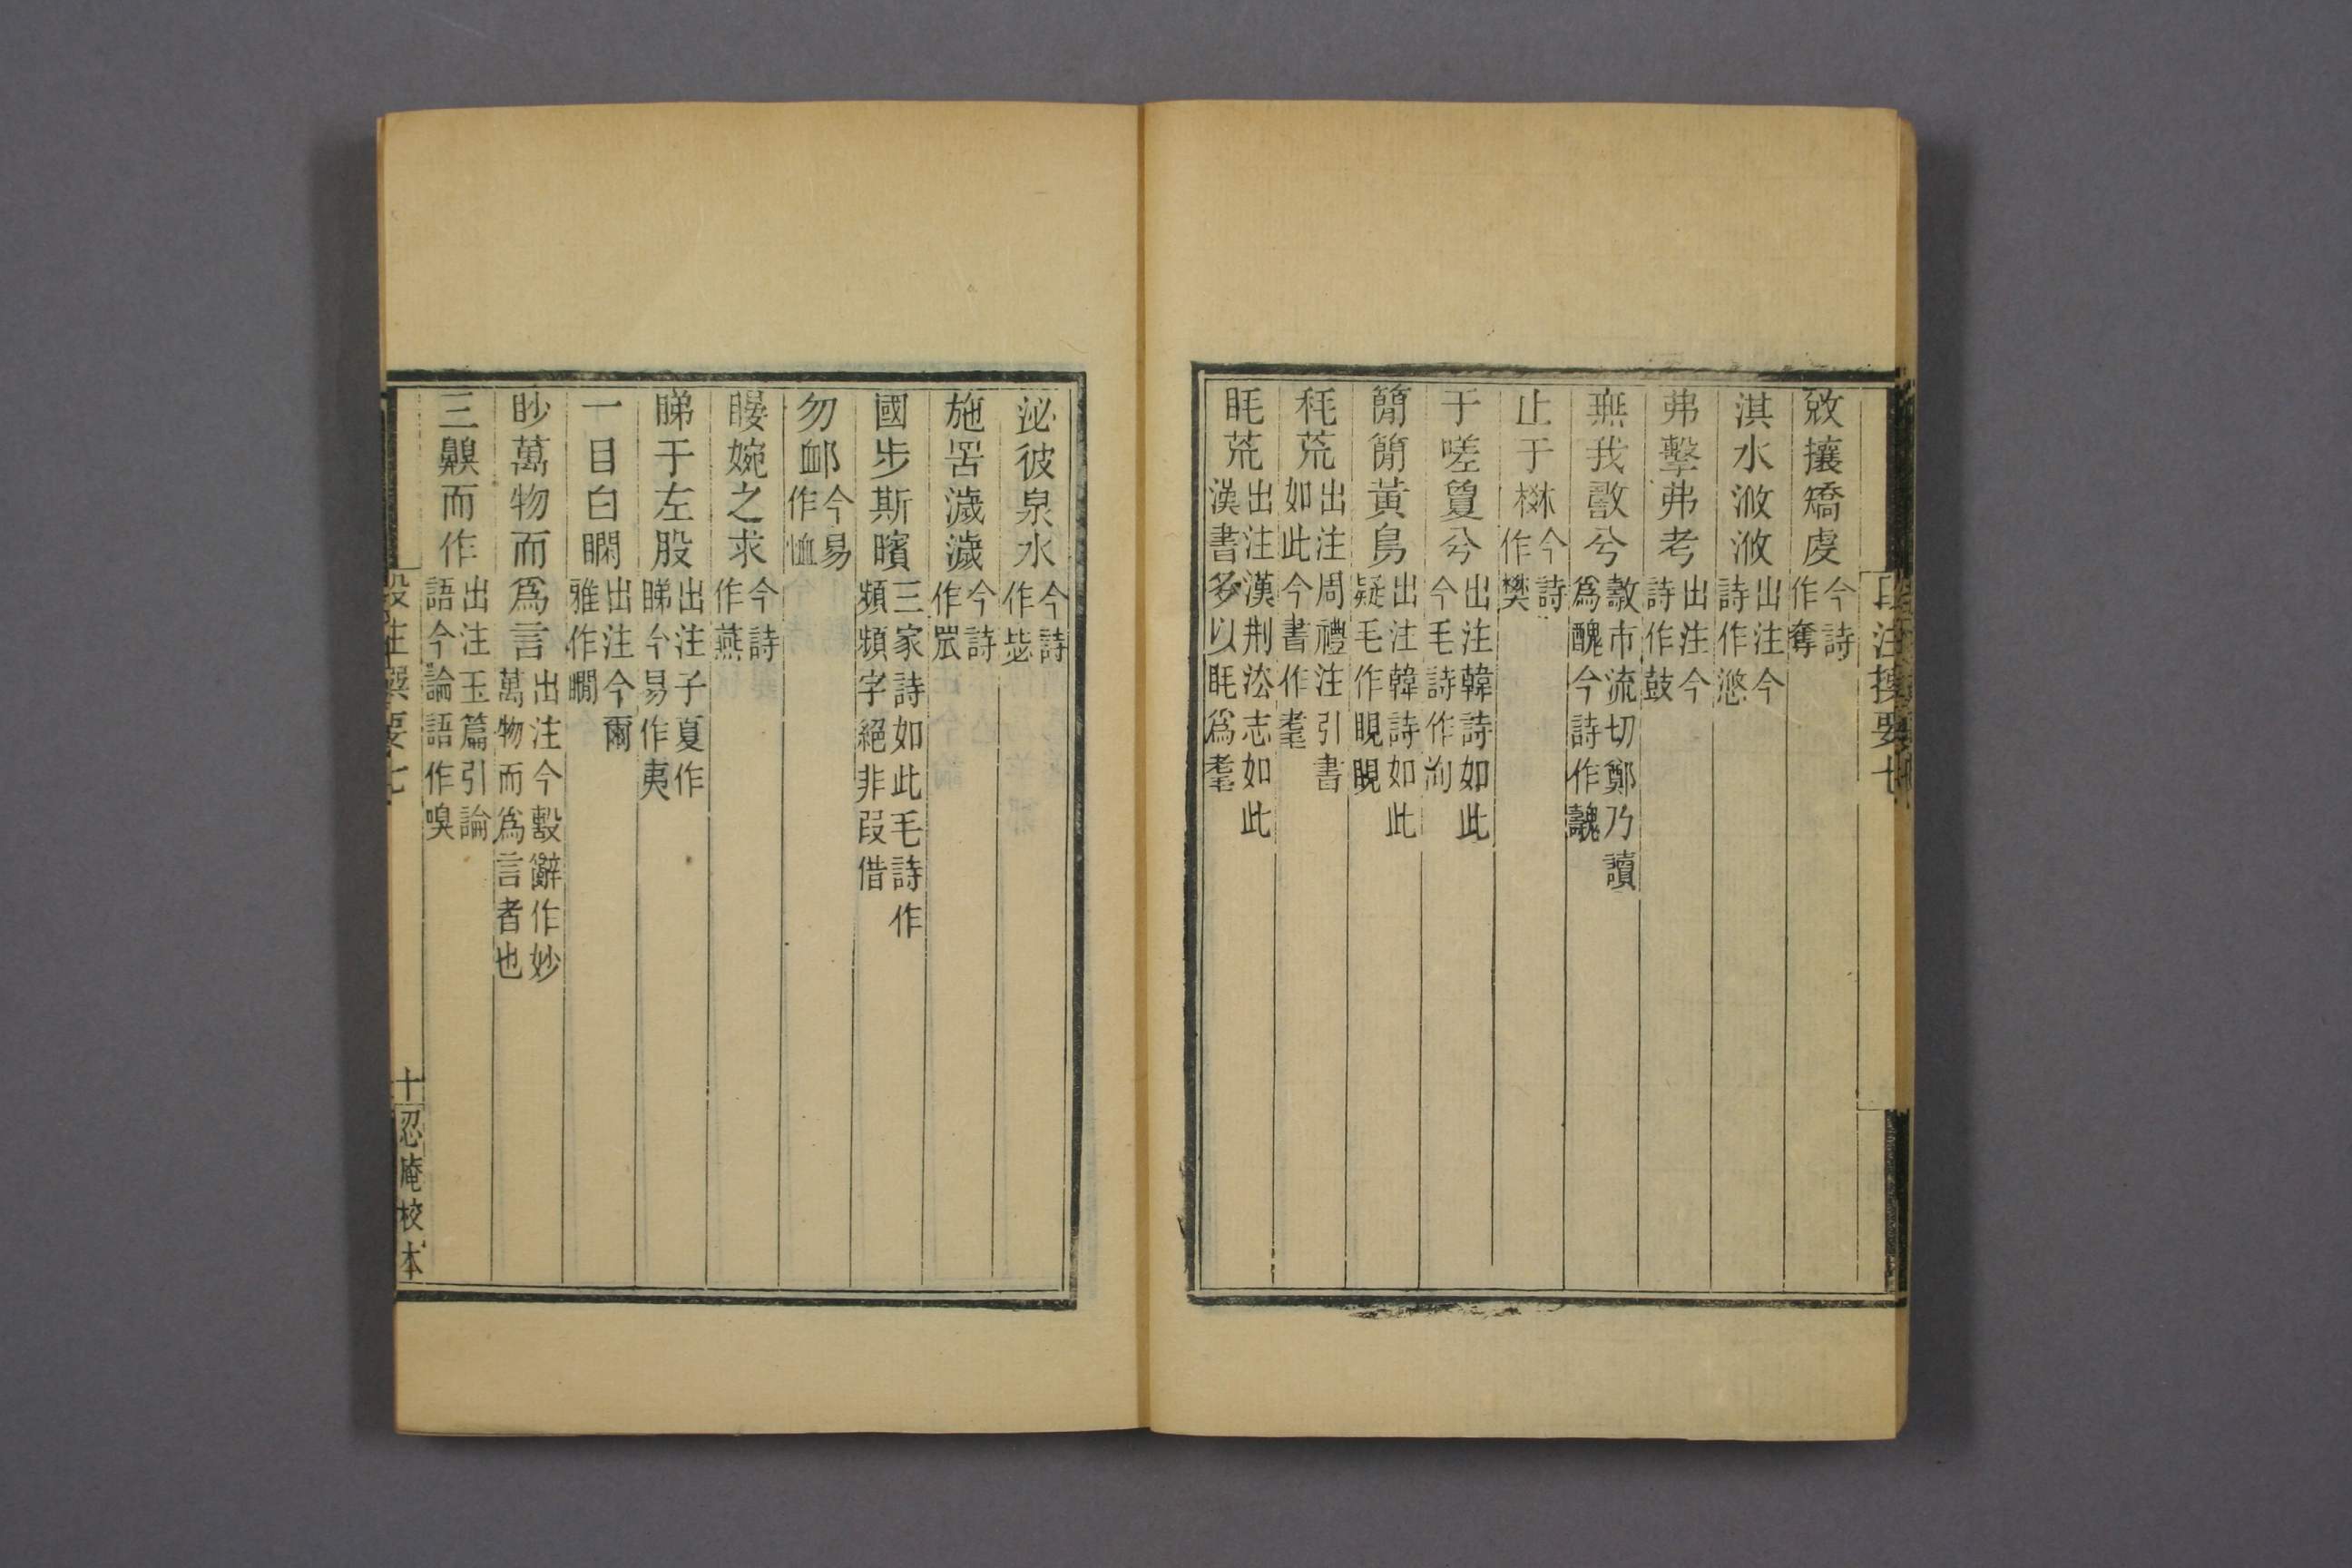 敚攘矯虔今詩作奪
淇水浟浟出注今詩作滺
弗擊弗考出注今詩作鼓
無我敾兮市流切鄭乃讀爲醜今詩作魗
止于棥今詩作樊
于嗟敻兮出注韓詩如此今毛詩作洵
簡簡黃鳥出注韓詩如此疑毛作睍睆
秏荒出注周禮注引書如此今書作耄
眊荒出注漢荆法志如此漢書多以眊爲耄
泌彼泉水今詩作毖
施罟濊濊今詩作眾
國步斯矉三家詩如此毛詩作頻頻字絕非叚借
勿卹今易作恤
㬫婉之求今詩作燕
睇于左股出注子夏作睇今易作夷
一目白瞷出注今爾雅作瞯
眇萬物而爲言出注今毄辭作妙萬物而爲言者也
三齅而作出注玉篇引論語今論語作嗅
段注撰要七
十
忍庵校本